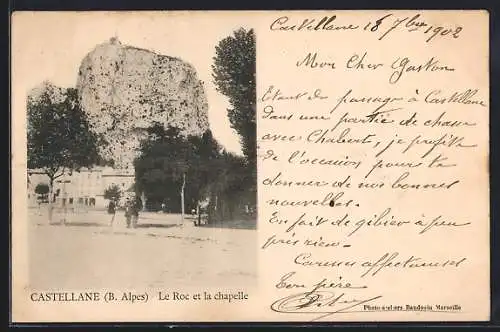 Castellane 18 7bre 1902
Mon Cher Gaston
Etant de passage à Castellane
dans une partie de chasse
avec Chabert, je profite
de l'occasion pour te
donner de nos bonnes
nouvelles.
En fait de gibier à peu
près rien
Caresses affectueuses
Ton père
CASTELLANE (B. Alpes) Le Roc et la chapelle
Photo-ateliers Baudouin Marseille